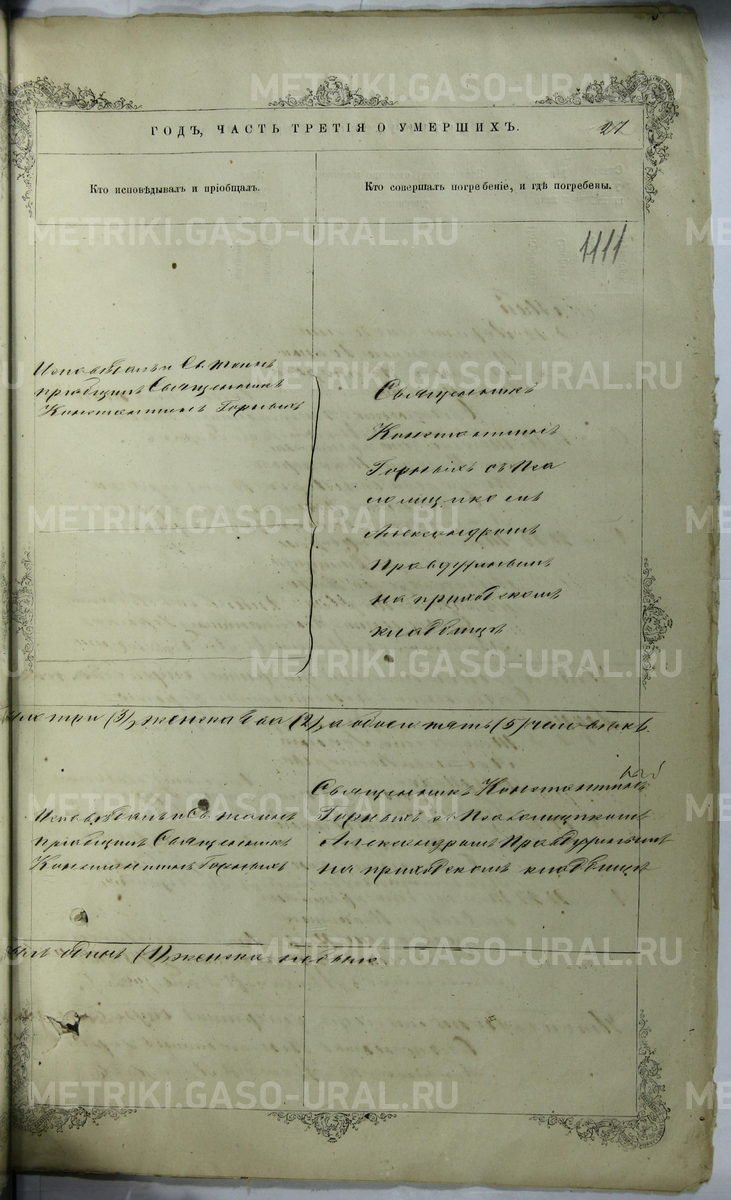 METRIKI.GASO-URAL.RU
ГОДЪ, ЧАСТЬ ТРЕТІЯ О УМЕРШИХЪ.
27
Кто исповѣдывалъ и пріобщалъ.
Кто совершалъ погребеніе, и гдѣ погребены.
1111
Исповѣдалъ и Св. таинъ
пріобщилъ Священникъ
Константинъ Горныхъ
Священникъ
Константинъ
Горныхъ съ Пса
ломщикомъ
Александромъ
Правдухинымъ
на приходскомъ
кладбищѣ
три (3), женска два (2), а обоего пять (5) человѣкъ.
Исповѣдалъ и Св. таинъ
пріобщилъ Священникъ
Константинъ Горныхъ
Священникъ Константинъ
Горныхъ съ Псаломщикомъ
Александромъ Правдухинымъ
на приходскомъ кладбищѣ
одинъ (1), женска не было.